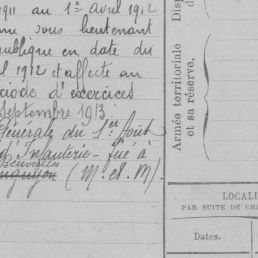 1911 au 1er avril 1912
me sous lieutenant
publique en date du
l 1912 et affecté au
riode d'exercices
Septembre 1913.
Générale du 1er Août
d'Infanterie - tué à
(M. et M.)
Disp
Armée territoriale
et sa réserve.
LOCALI
PAR SUITE DE CHA
Dates.